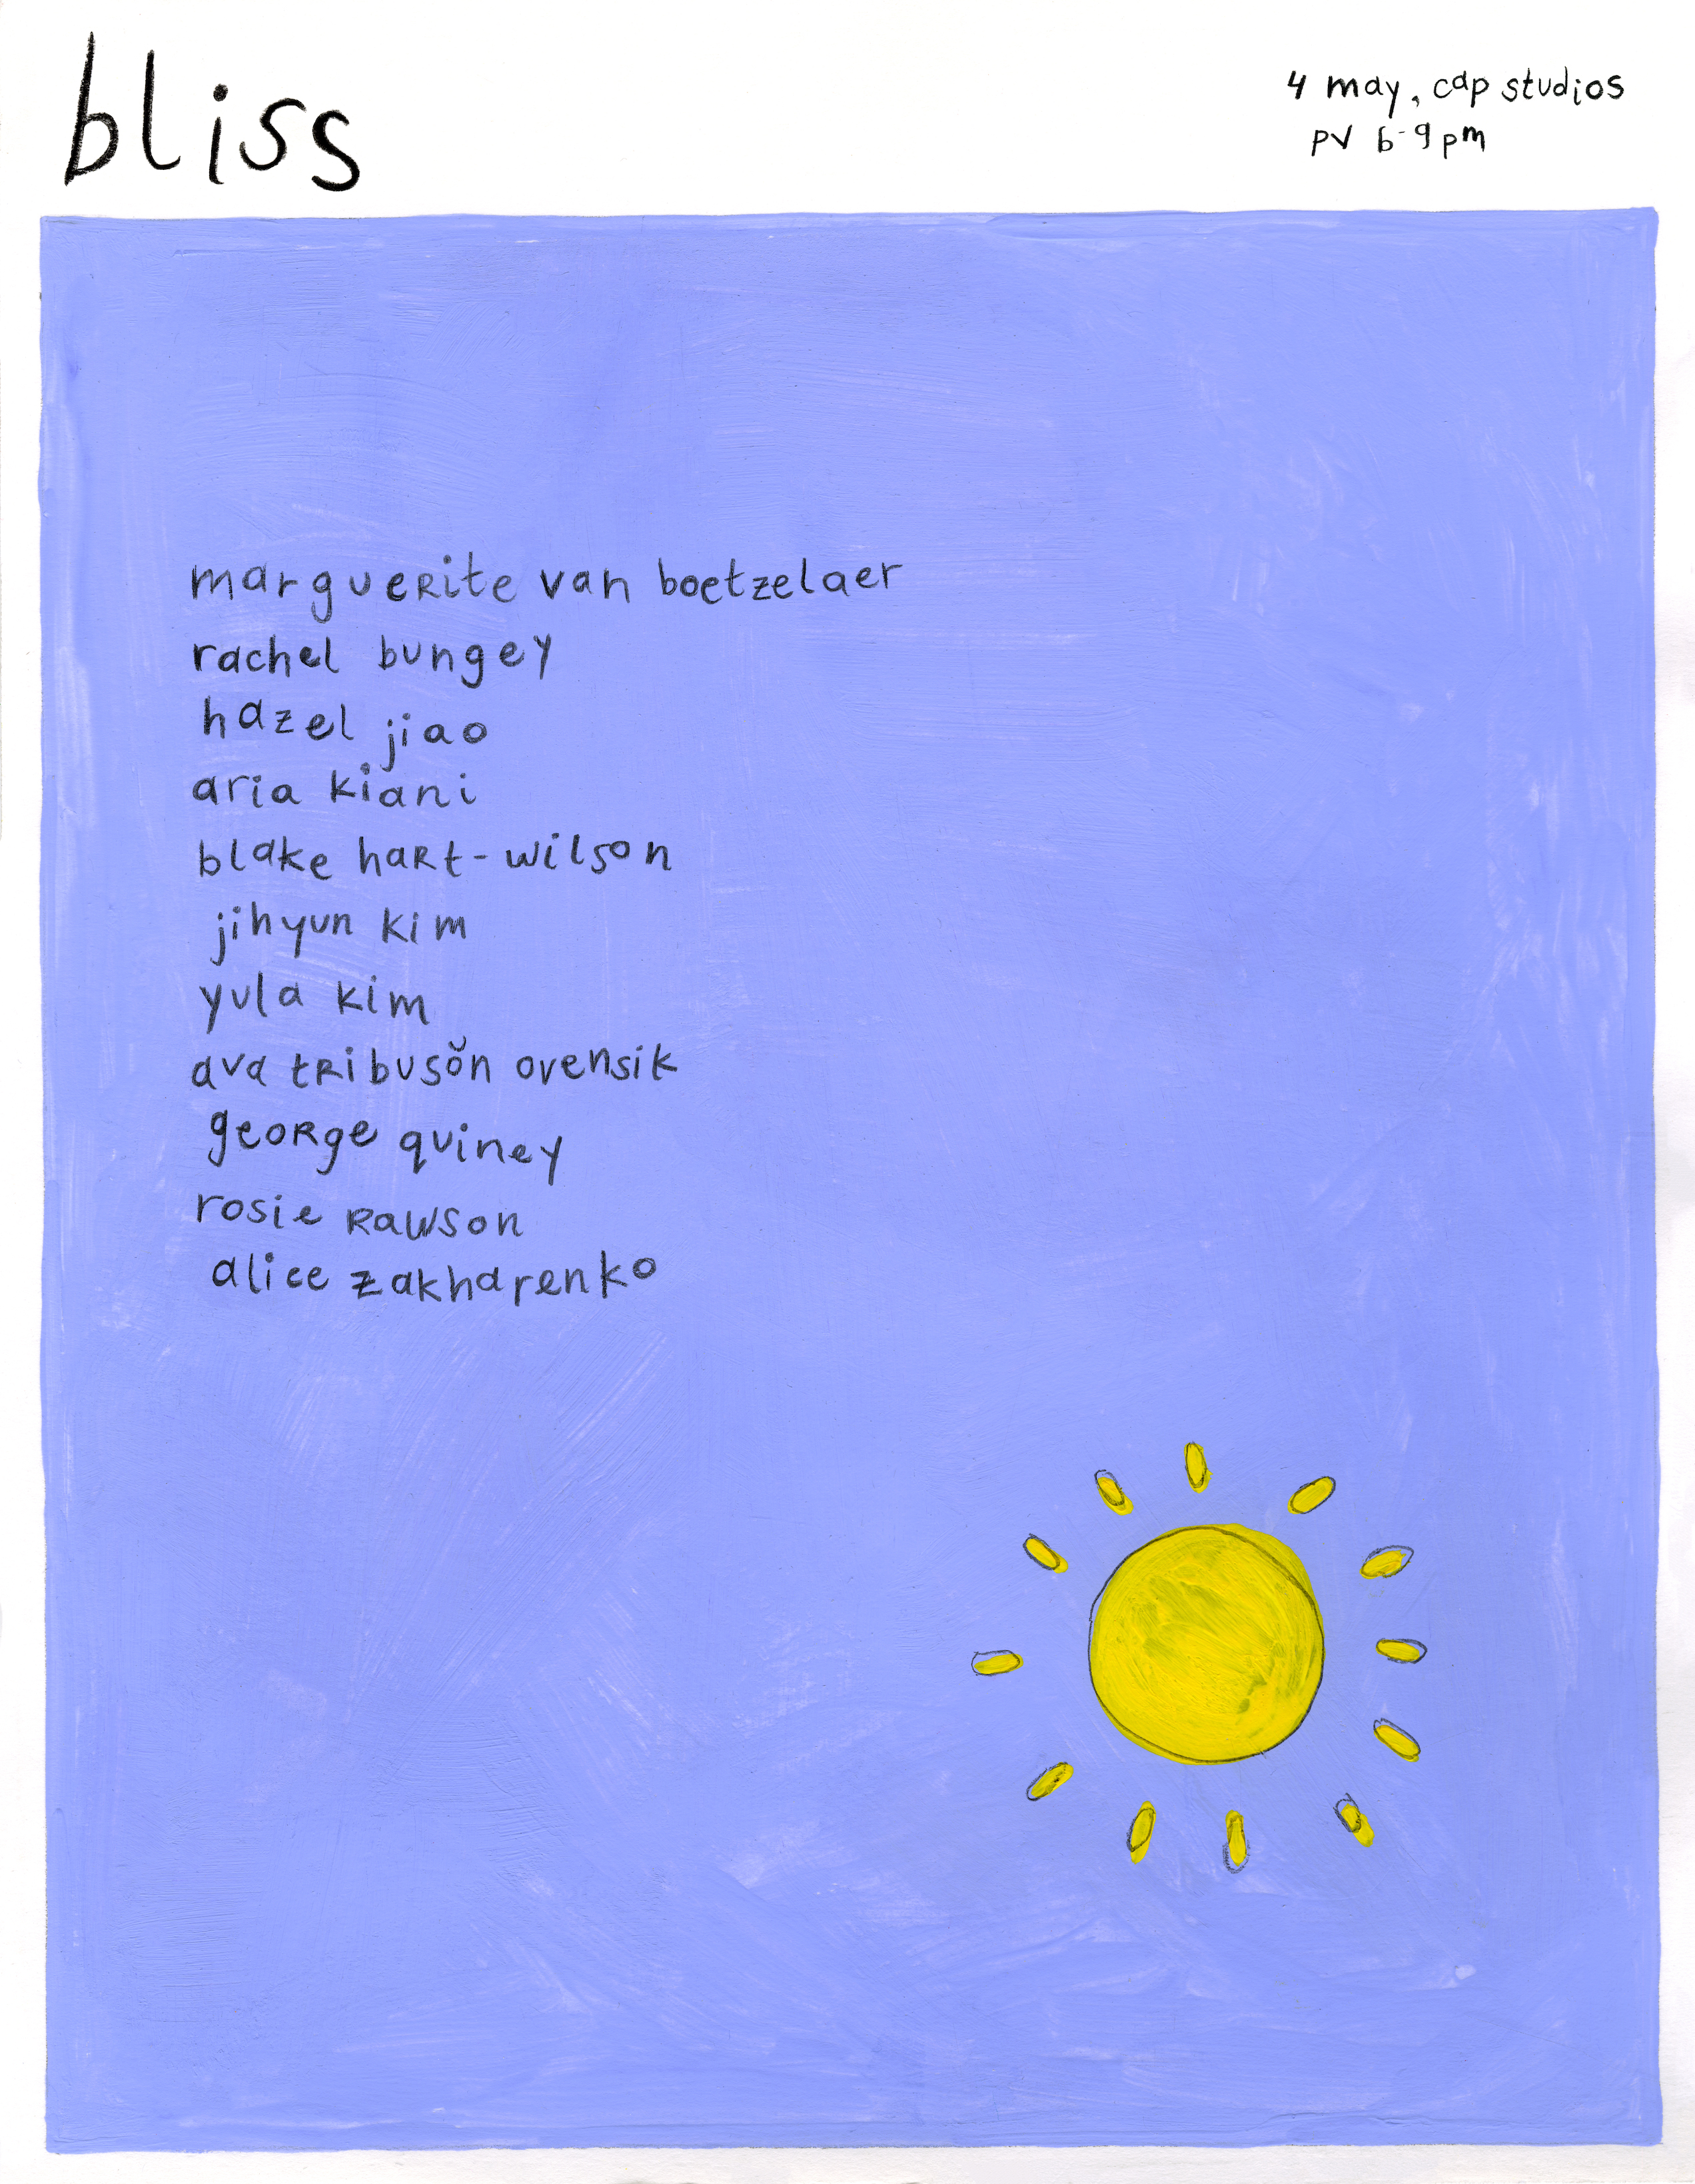 bliss
4 may, cap studios
pv 6-9pm
marguerite van boetzelaer
rachel bungey
hazel jiao
aria kiani
blake hart-wilson
jihyun kim
yula kim
ava tribusŏn ovensik
george quiney
rosie rawson
alice zakharenko